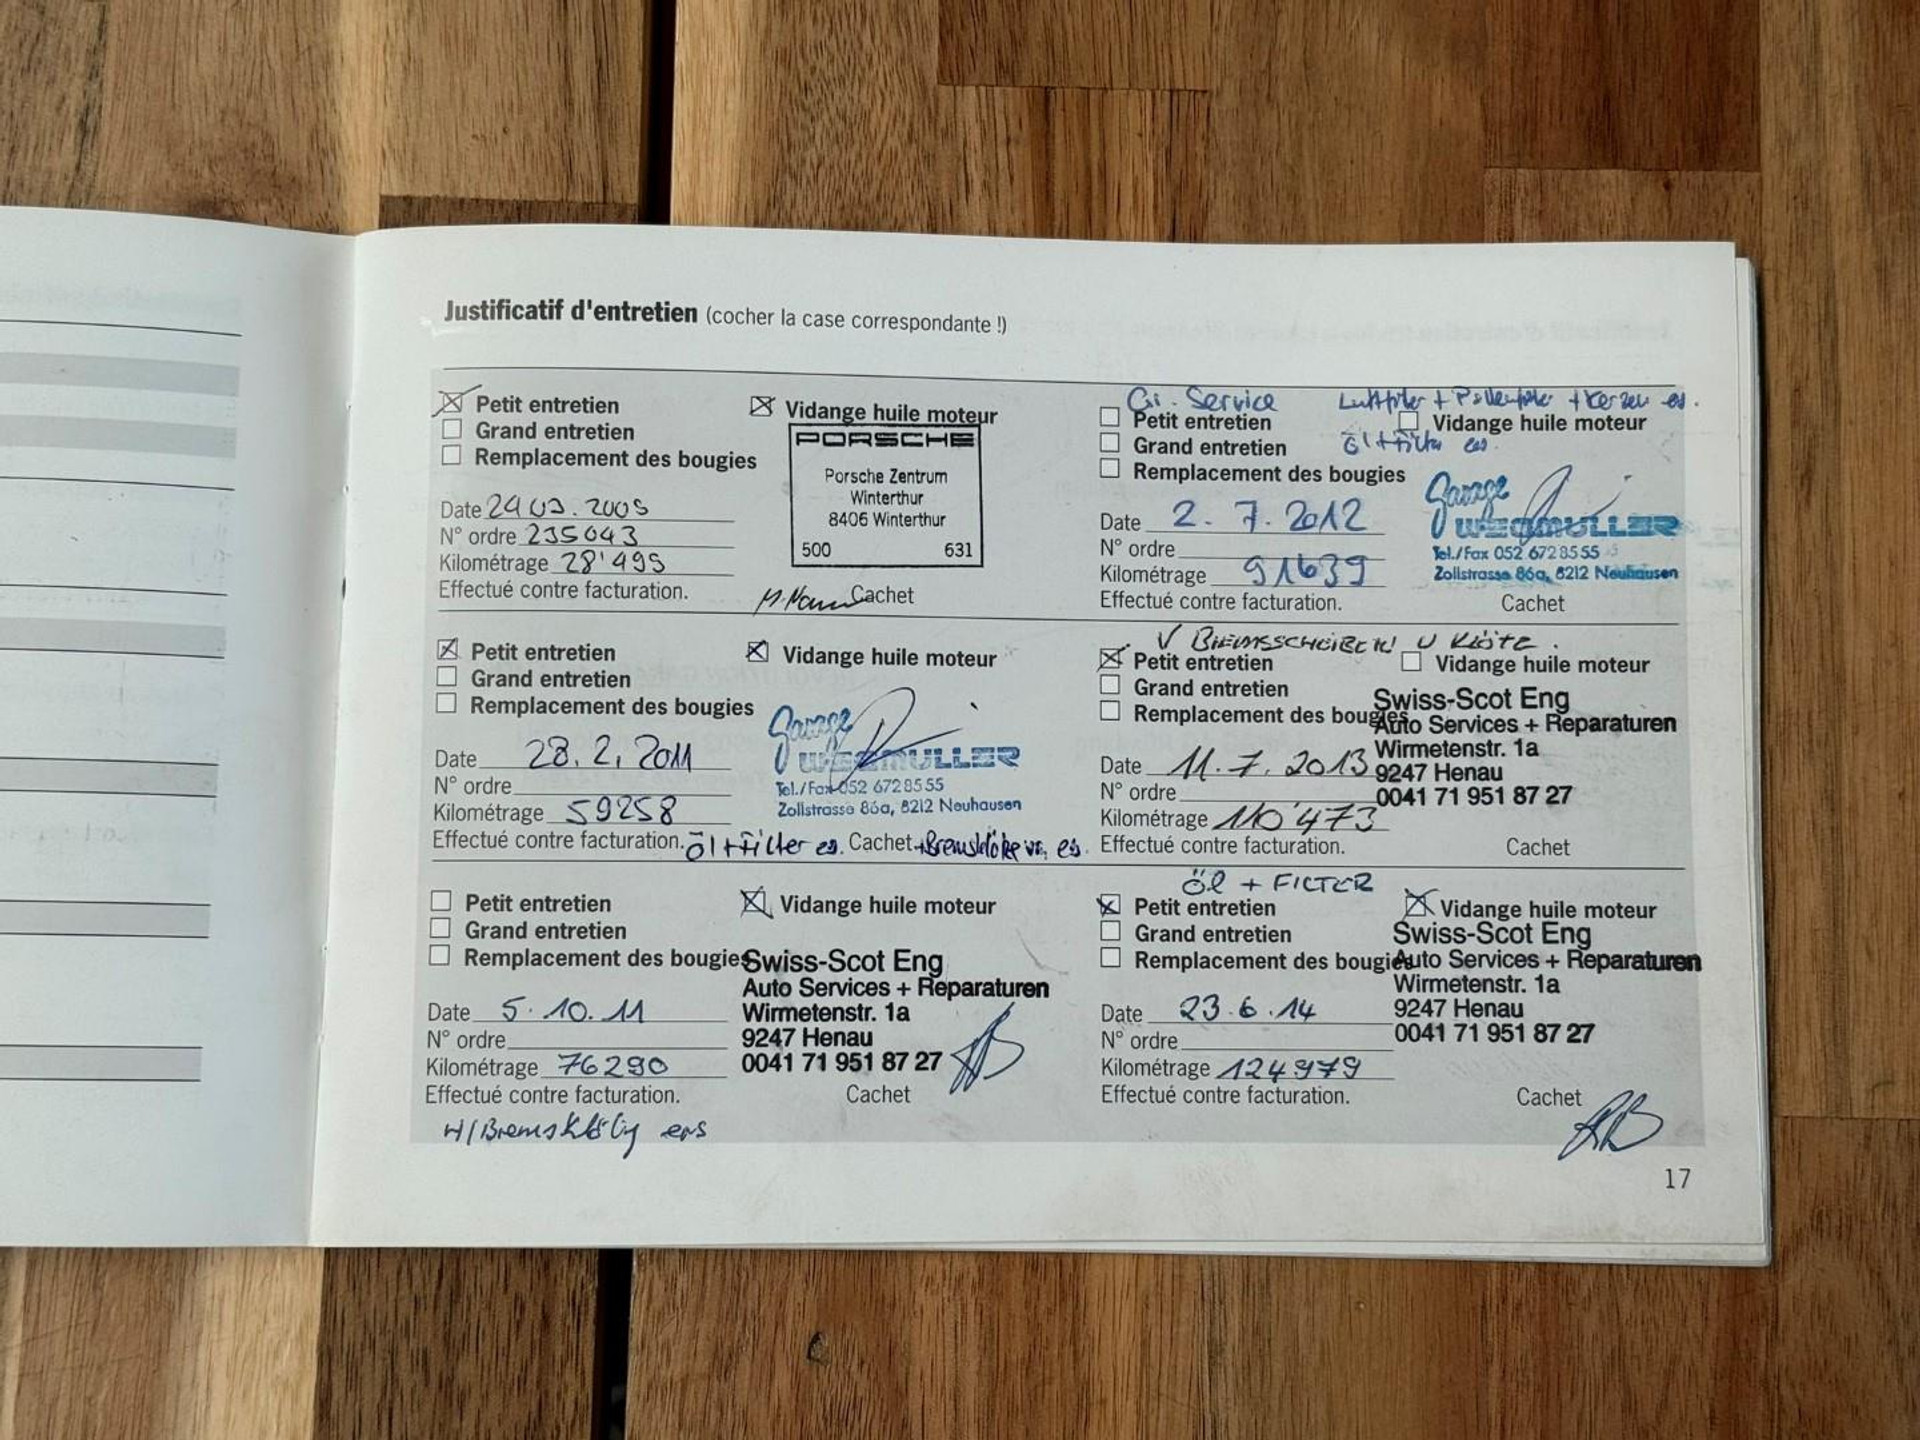 Justificatif d'entretien (cocher la case correspondante !)
Petit entretien
Vidange huile moteur
Grand entretien
Remplacement des bougies
PORSCHE
Porsche Zentrum
Winterthur
8406 Winterthur
500 631
Date
N° ordre 235043
Kilométrage 28'495
Effectué contre facturation.
Cachet
Petit entretien
Vidange huile moteur
Grand entretien
Remplacement des bougies
Garage
WEGMÜLLER
Tel./Fax 052 672 85 55
Zollstrasse 86a, 8212 Neuhausen
Date 28.2.2011
N° ordre
Kilométrage 59258
Effectué contre facturation.
Öl + Filter es. Cachet
Petit entretien
Vidange huile moteur
Grand entretien
Remplacement des bougies
Swiss-Scot Eng
Auto Services + Reparaturen
Wirmetenstr. 1a
9247 Henau
0041 71 951 87 27
Date 5.10.11
N° ordre
Kilométrage 76290
Effectué contre facturation.
Cachet
Gr. Service
Luftfilter + Pollenfilter + Kerzen es.
Petit entretien
Vidange huile moteur
Grand entretien
Öl + Filter es.
Remplacement des bougies
Garage
WEGMÜLLER
Tel./Fax 052 672 85 55
Zollstrasse 86a, 8212 Neuhausen
Date 2.7.2012
N° ordre
Kilométrage 91639
Effectué contre facturation.
Cachet
V BREMSSCHEIBEN U KLÖTZ.
Petit entretien
Vidange huile moteur
Grand entretien
Remplacement des bougies
Swiss-Scot Eng
Auto Services + Reparaturen
Wirmetenstr. 1a
9247 Henau
0041 71 951 87 27
Date 11.7.2013
N° ordre
Kilométrage 110'473
Effectué contre facturation.
Cachet
Öl + FILTER
Petit entretien
Vidange huile moteur
Grand entretien
Remplacement des bougies
Swiss-Scot Eng
Auto Services + Reparaturen
Wirmetenstr. 1a
9247 Henau
0041 71 951 87 27
Date 23.6.14
N° ordre
Kilométrage 124979
Effectué contre facturation.
Cachet
17